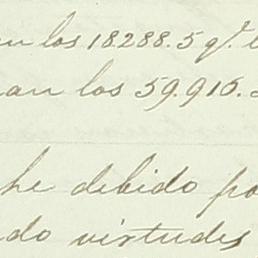 los 18288.5 q.
an los 59.916.
he debido po
do virtudes